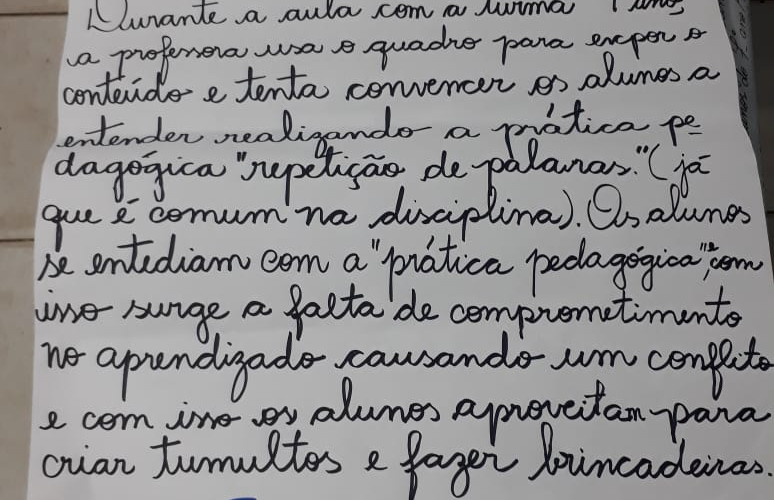 Durante a aula com a turma 1 ano,
a professora usa o quadro para expor o
conteúdo e tenta convencer os alunos a
entender realizando a prática pe-
dagógica "repetição de palavras." (já
que é comum na disciplina). Os alunos
se entediam com a "prática pedagógica", e com
isso surge a falta de comprometimento
no aprendizado causando um conflito
e com isso os alunos aproveitam para
criar tumultos e fazer brincadeiras.